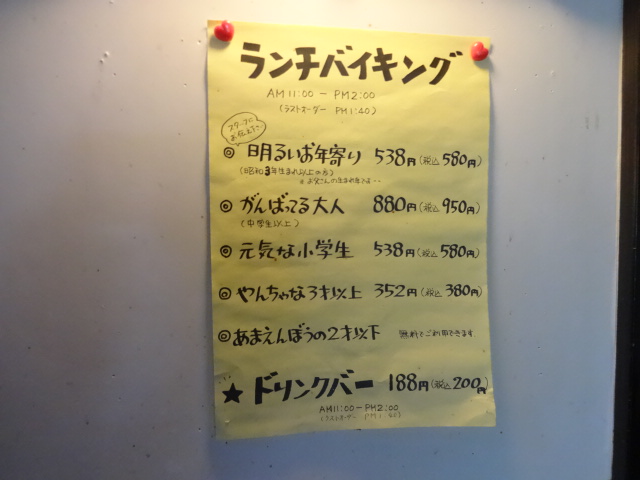 ランチバイキング
AM11:00 － PM2:00
(ラストオーダー PM1:40)
お伝え下さい
◎ 明るいお年寄り 538円(税込580円)
(昭和3年生まれ以上の方)
※お父さんの生まれ年です・・
◎ がんばってる大人 880円(税込950円)
(中学生以上)
◎ 元気な小学生 538円(税込580円)
◎ やんちゃな3才以上 352円(税込380円)
◎ あまえんぼうの2才以下 無料でご利用できます
★ ドリンクバー 188円(税込200円)
AM11:00－PM2:00
(ラストオーダー PM1:40)